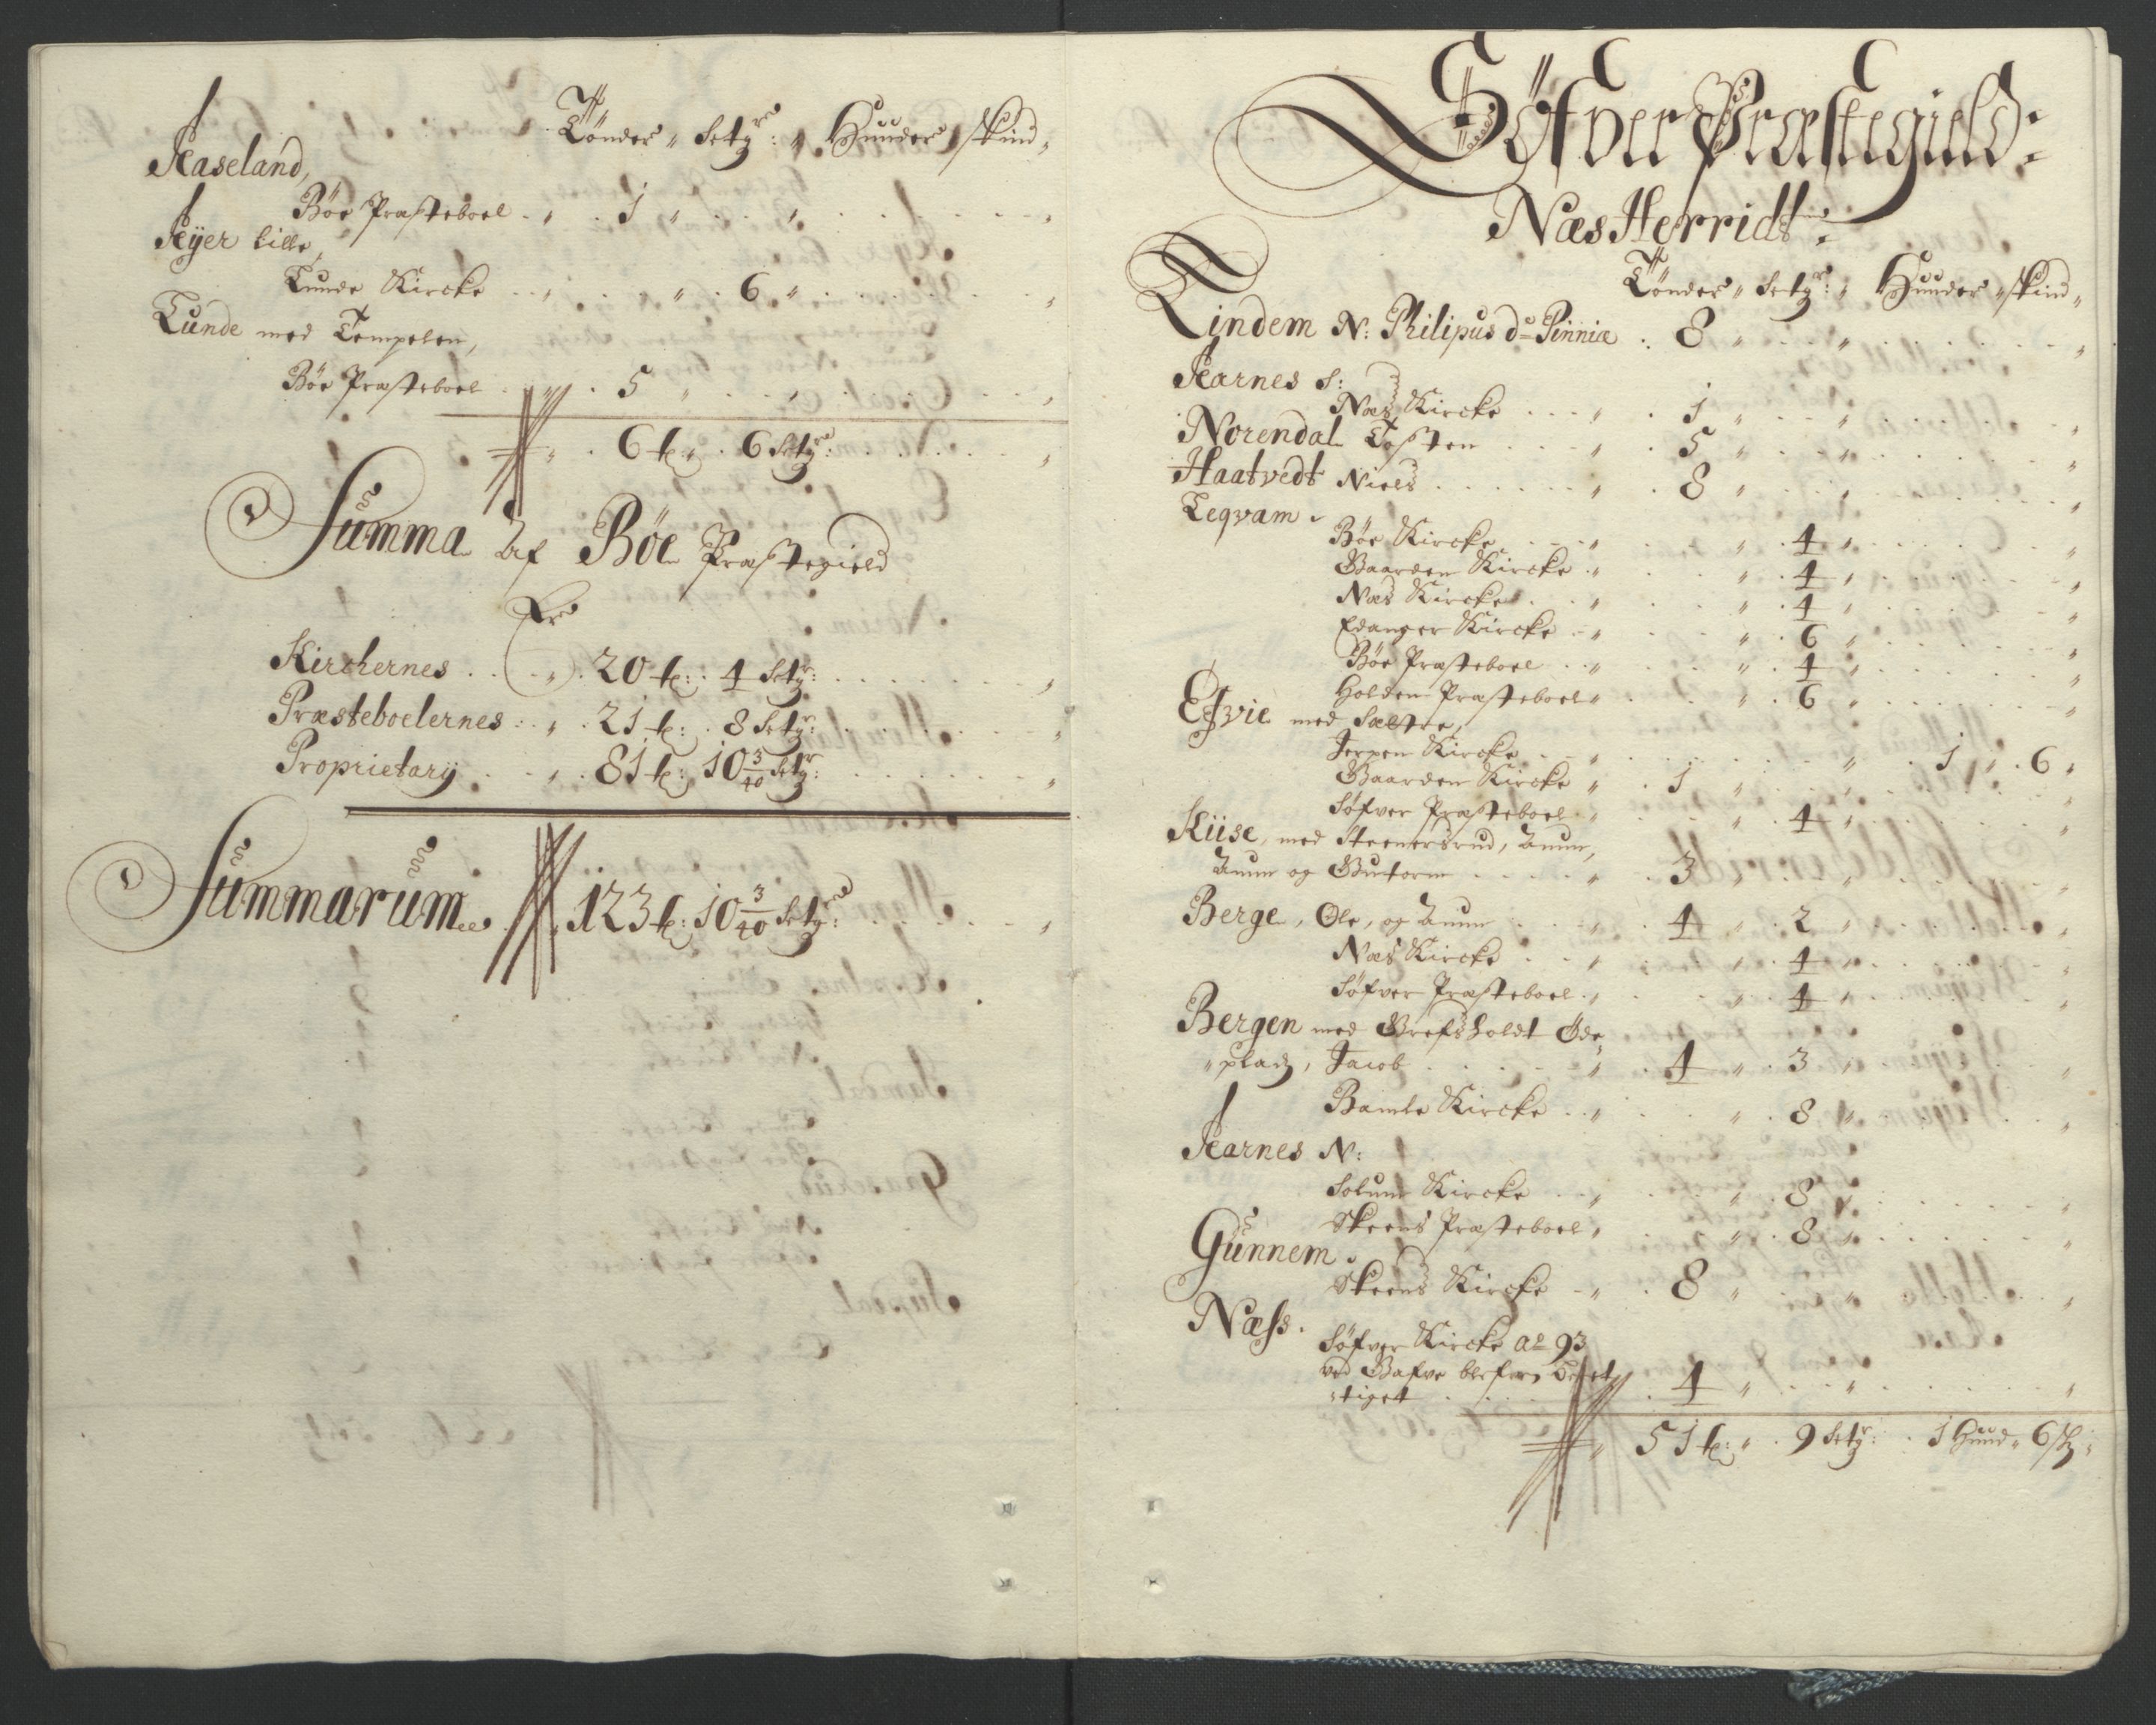 Tönder " Setgr: " Huuder " skind "
Aaseland,
Böe Præsteboel . " . 1 " . . " . . . "
Aÿer lille,
Lunde Kircke . . " . . " . 6 " . . . "
Lunde med Tempelen,
Böe Præsteboel . . " . 5 " . . " . . "
" . 6 t: " . 6 Setgr: . . . "
Summa Af Böe Præstegield
Er
Kirchernes . . . " . 20 t: . 4 Setgr: . . . "
Præsteboelernes . . " . 21 t: . 8 Setgr: . . . "
Proprietary . . " . 81 t: 10 3/40 Setgr: . . . "
Summarum . " 123 t: 10 3/40 Setgr: . . . "
Söfver Præstegield:
Næs Herridt:
Tönder " Setgr: " Huuder " skind "
Lindem N: Philipus de Pinniæ . 8 " . . " . . . "
Aarnes S:
Næs Kircke . . . " . 1 " . . " . . . "
Norendal Tosten . . . " . 5 " . . " . . . "
Haatvedt Niels . . . . " . 8 " . . " . . . "
Teqvam .
Böe Kircke . . . " . . " . 4 " . . . "
Gaarden Kircke . " . . " . 4 " . . . "
Næs Kircke . . . " . . " . 4 " . . . "
Edanger Kircke . . " . . " . 6 " . . . "
Böe Præsteboel . . " . . " . 4 " . . . "
Holden Præsteboel " . . " . 6 " . . . "
med Sæltre,
Jerpen Kircke . . " . . . . " . 1 " . 6 "
Gaarden Kircke " . 1 " . . " . . . "
Söfver Præsteboel " . . " . 4 " . . . "
Kiise, med Steenersrud, Aum,
Aum og Guttorm . . . . " . 3 " . . " . . . "
Berge, Ole, og Aum . . . " . 4 " . 2 " . . . "
Næs Kircke . . " . . " . 4 " . . . "
Söfver Præsteboel . " . . " . 4 " . . . "
Bergen med Grefsholdt Öde
" pladz, Jacob . . . . " . 4 " . 3 " . . . "
Bamle Kircke . . " . . " . 8 " . . . "
Aarnes N:
Solum Kircke . . " . . " . 8 " . . . "
Skeens Præsteboel " . . " . 8 " . . . "
Gunnem .
Skeens Kircke . " . 8 " . . " . . . "
Næss .
Söfver Kircke Ao 93
ved
" tiget . . . 4 " . . " . . . "
" 51 t: " . 9 Setgr: . 1 Huud " 6 sk "